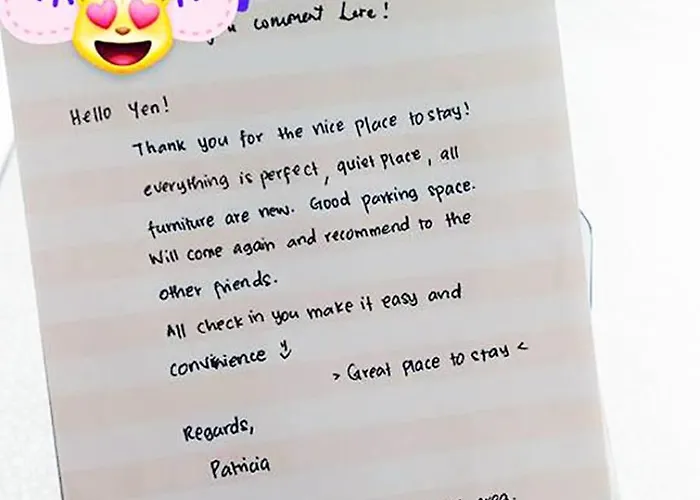 comment here!
Hello Yen!
Thank you for the nice place to stay!
everything is perfect, quiet place, all
furniture are new. Good parking space.
Will come again and recommend to the
other friends.
All check in you make it easy and
convinience
> Great place to stay <
Regards,
Patricia